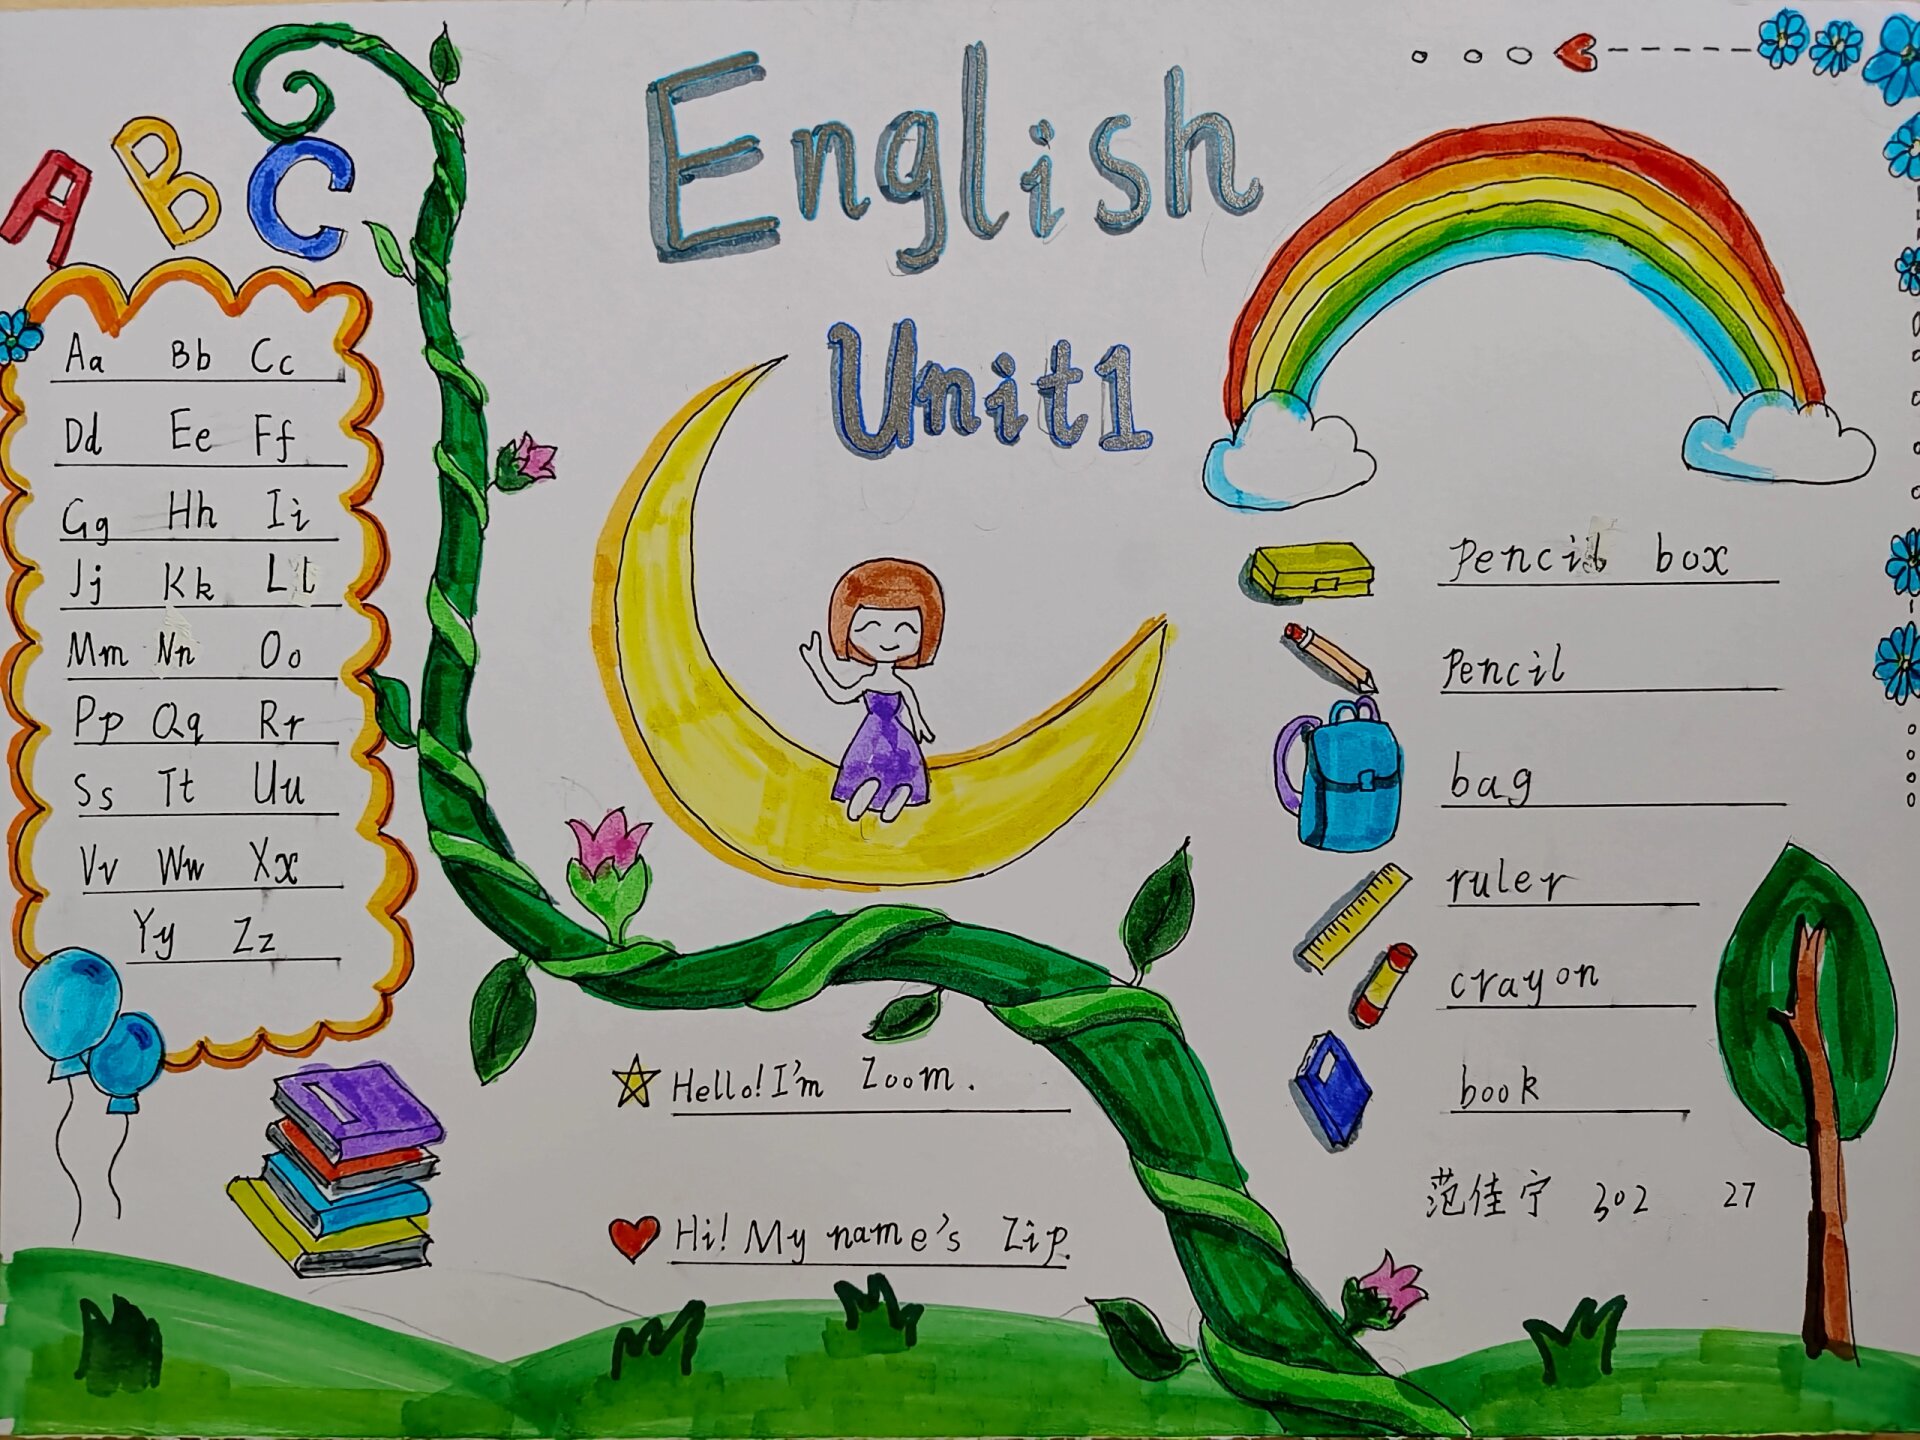 English
Unit1
A B C
Aa Bb Cc
Dd Ee Ff
Gg Hh Ii
Jj Kk Ll
Mm Nn Oo
Pp Qq Rr
Ss Tt Uu
Vv Ww Xx
Yy Zz
Hello! I'm Zoom.
Hi! My name's Zip.
Pencil box
Pencil
bag
ruler
crayon
book
范佳宁 302 27